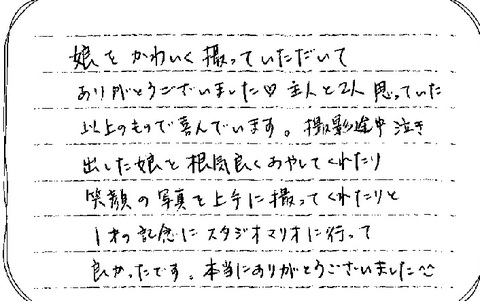 娘を かわいく 撮っていただいて
ありがとうございました♡ 主人と2人 思っていた
以上のもので喜んでいます。撮影途中 泣き
出した娘を 根気良く あやしてくれたり
笑顔の 写真を 上手に 撮って くれたりと
1才の 記念に スタジオマリオに行って
良かったです。本当にありがとうございました